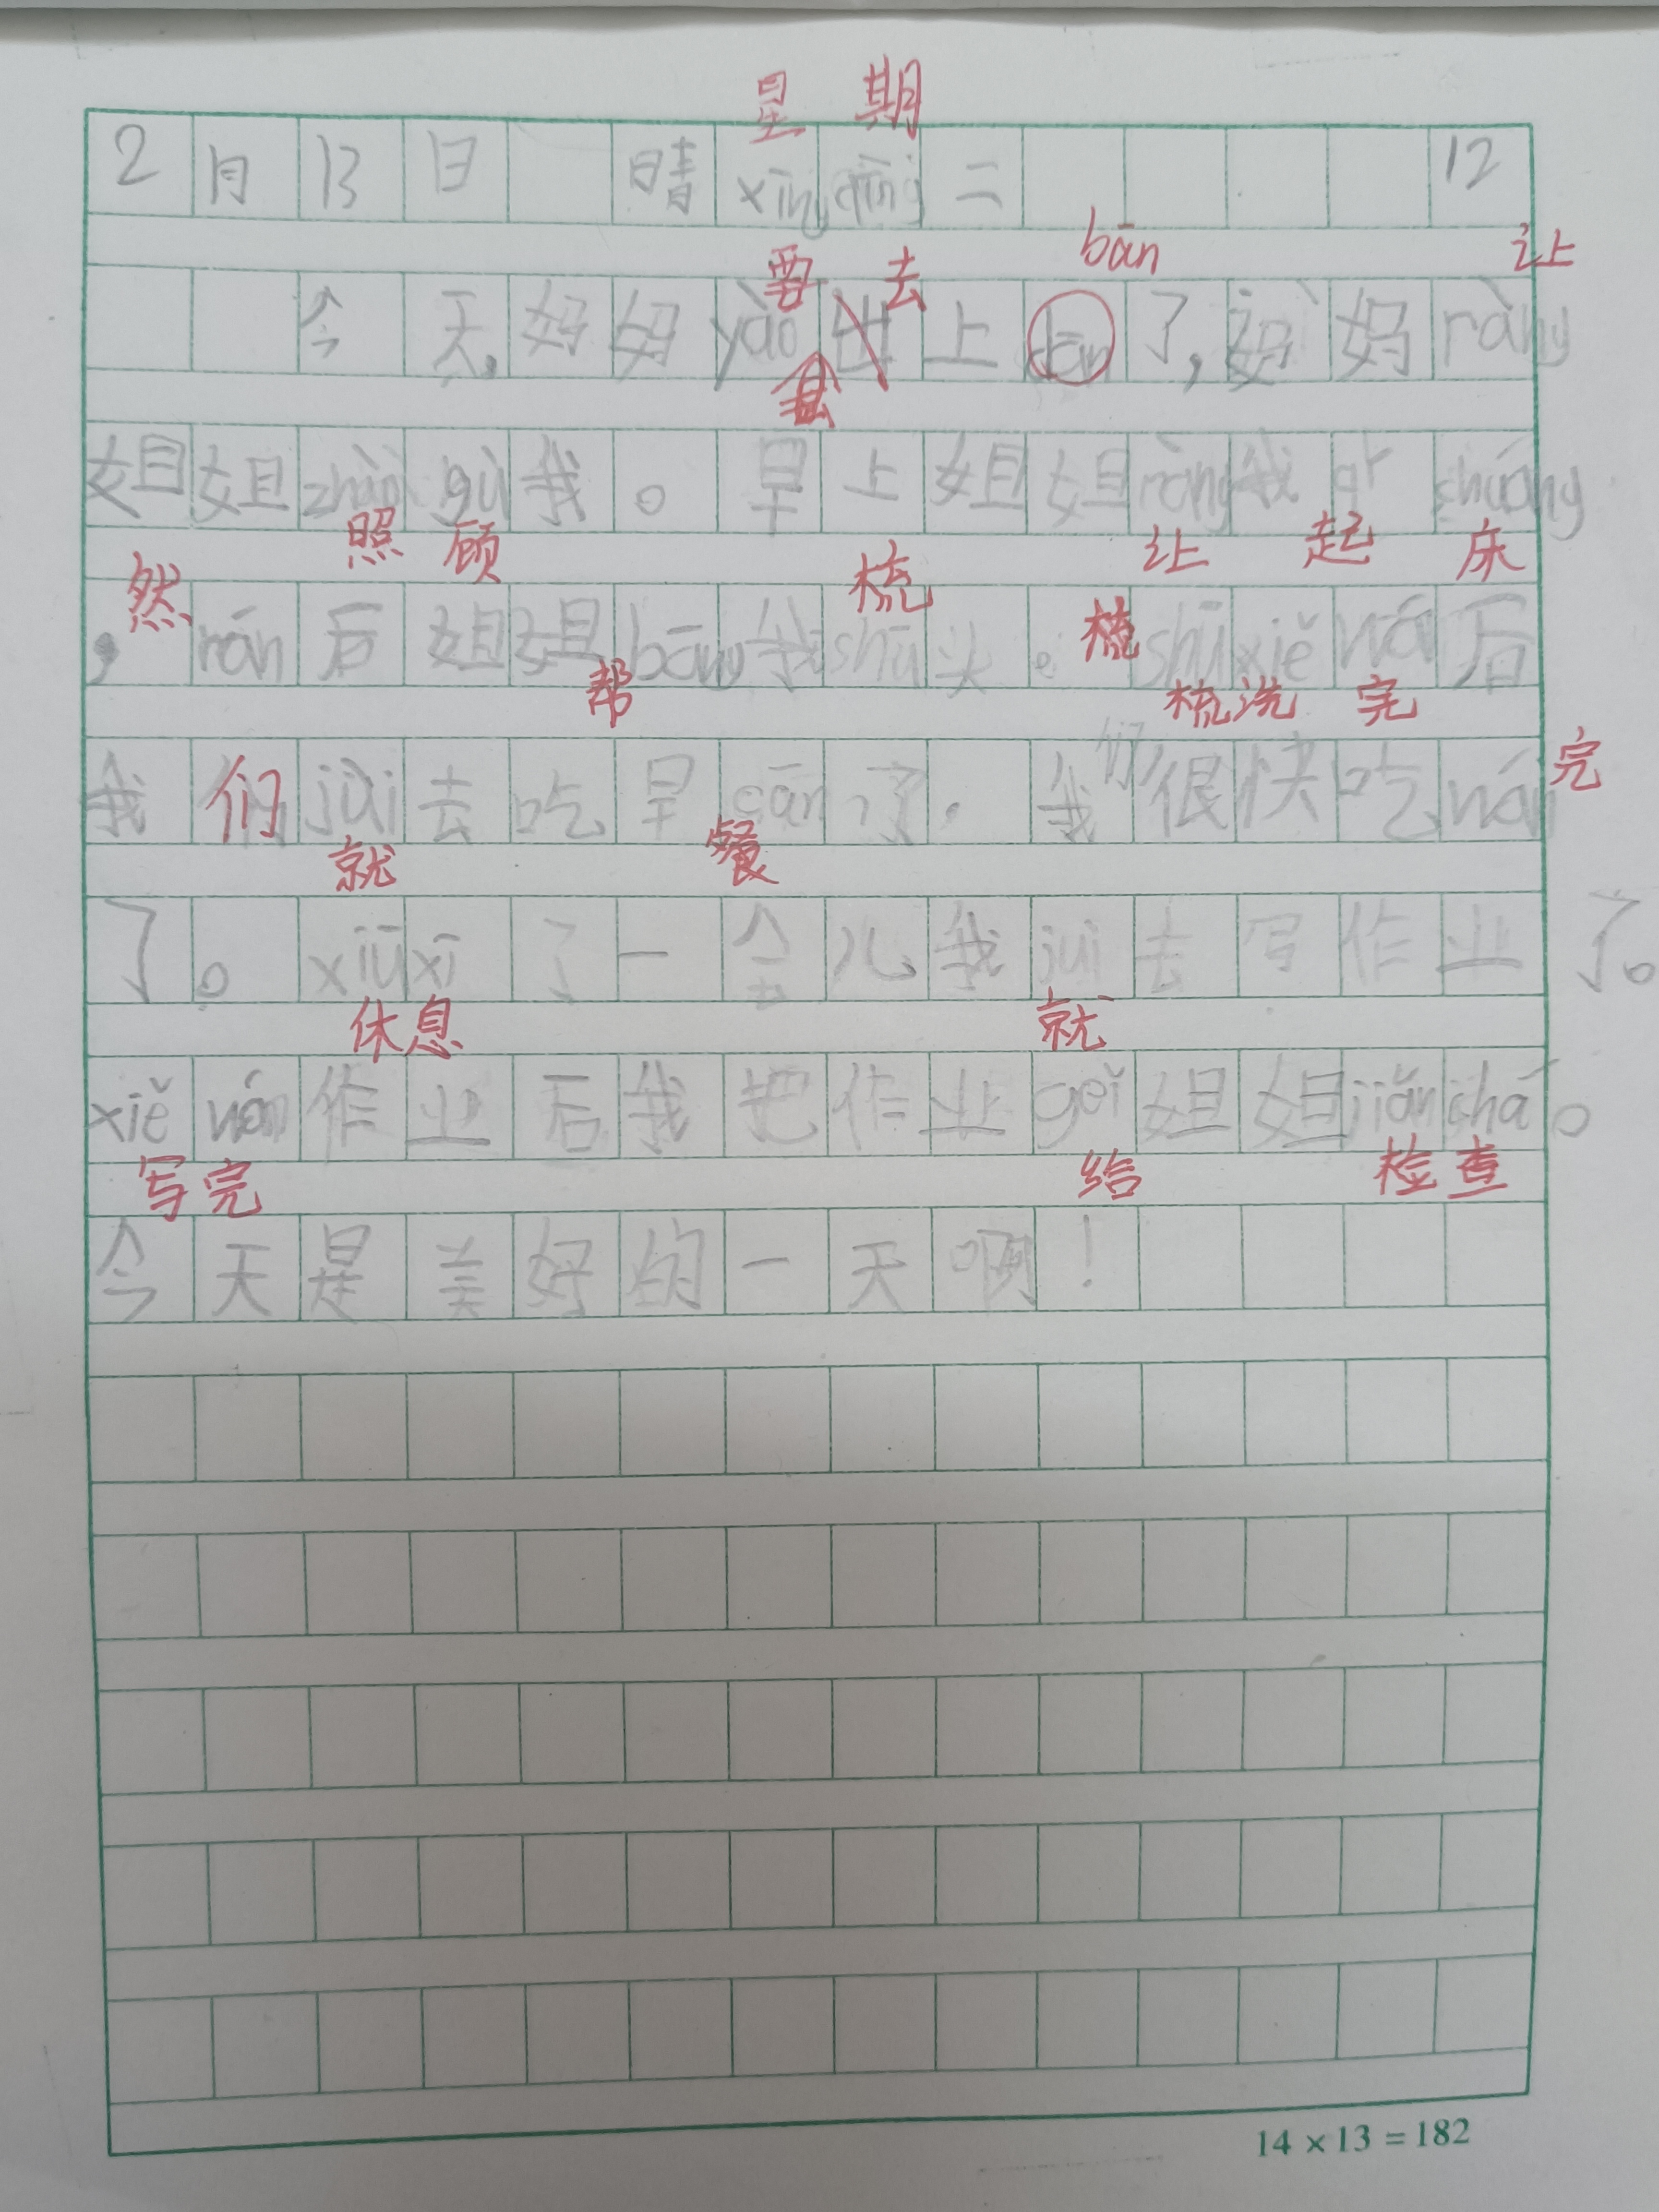 星期
2月13日 晴xīngqīng二 12
要去 bān 让
今天,妈妈yào出上dān了,妈妈ràng
姐姐zhàogù我。早上姐姐ràng我 shuáng
照顾 让起床
然 梳
,rán后姐姐bāng我shū头。梳shūxiě wá后
帮 梳洗完
我们jiùi去吃早cān了。我们很快吃wán完
就 餐
了。xiūxī了一会儿我jui去写作业了。
休息 就
xiě wán作业后我把作业gěi姐姐jiǎnchá。
写完 给 检查
今天是美好的一天啊!
14×13=182